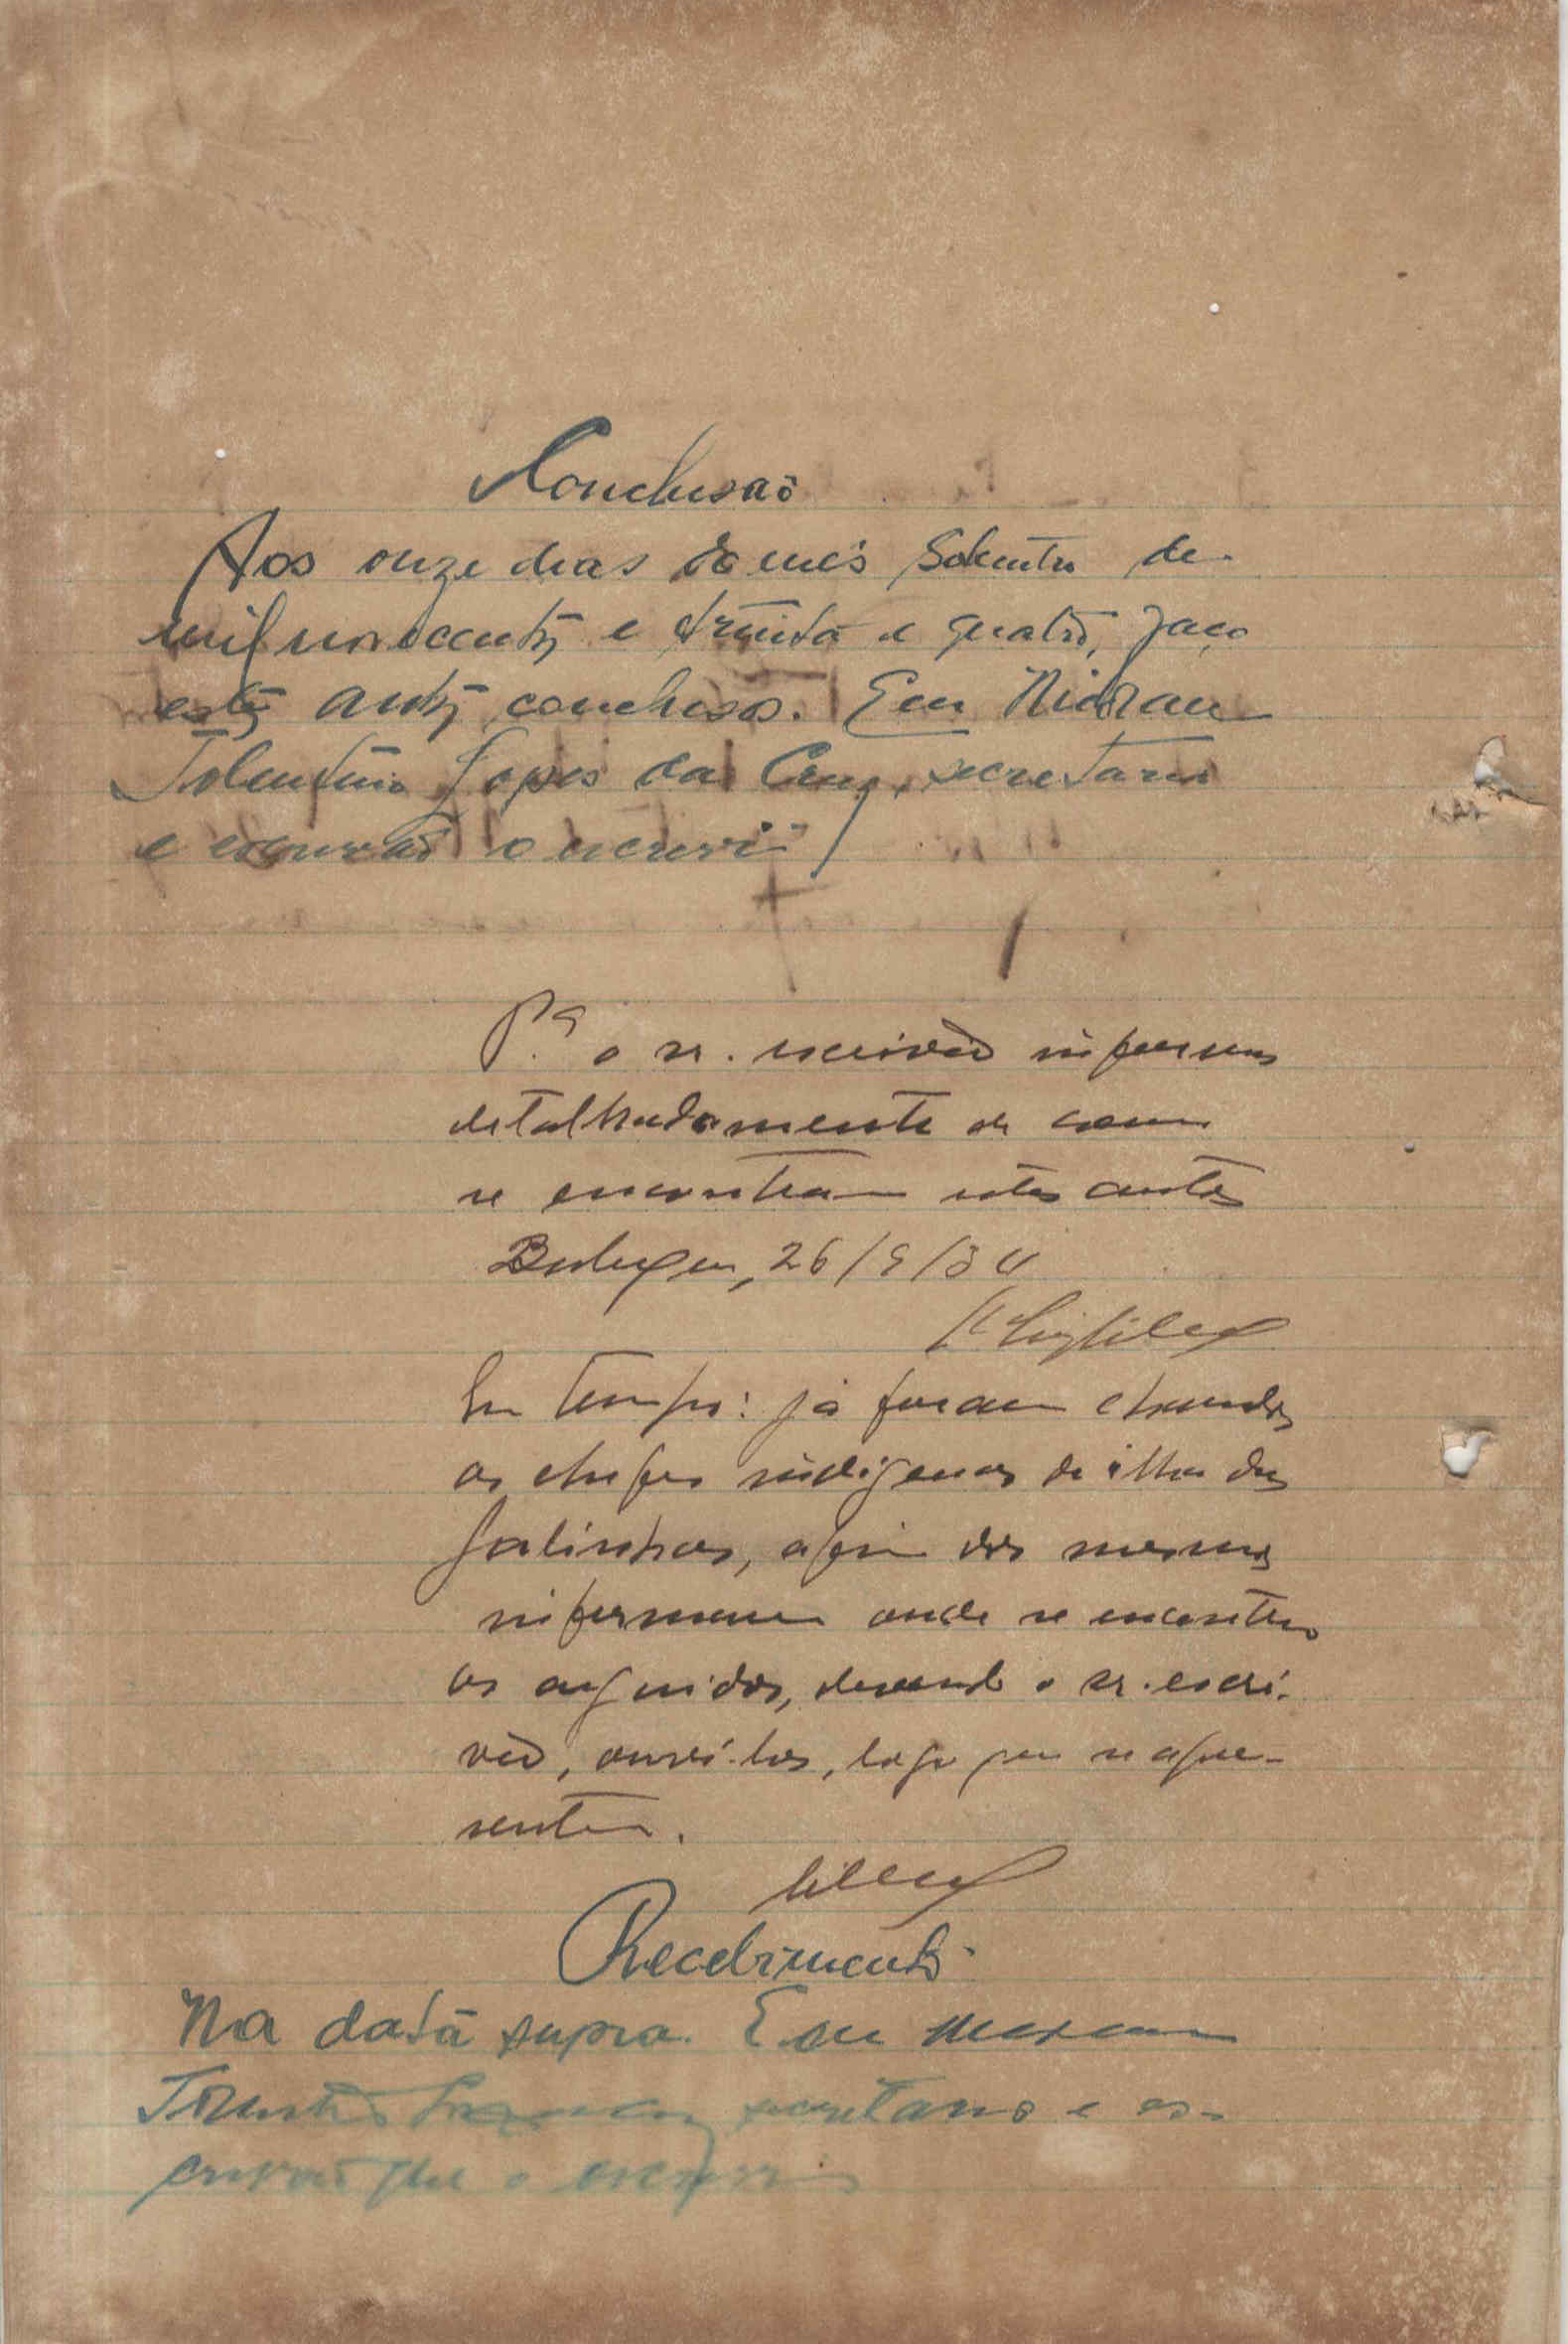 Conclusão
Aos onze dias do mês Setembro de
mil novecentos e trinta e quatro, faço
estes autos conclusos. Eu
Tolentino Lopes da Cruz, secretario
e escrivão o escrevi
Pª o sr. escrivão informar
detalhadamente de como
se encontram estes autos
26/9/34
Em tempo: já foram chamados
os chefes indigenas da ilha das
Galinhas, afim dos mesmos
informarem onde se encontram
os arguidos, devendo o sr. escri-
vão, ouvi-los, logo que se apre-
sentem.
Recebimento
Na data supra. Eu
secretario e es-
crivão que o escrevi